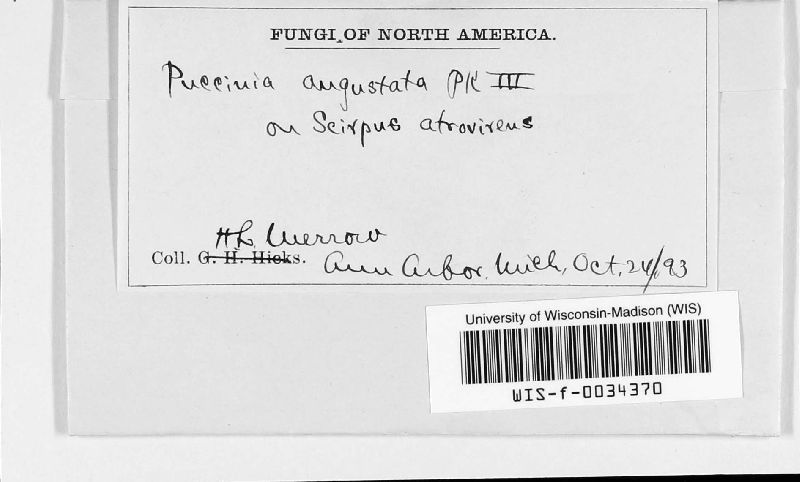 FUNGI OF NORTH AMERICA.
Puccinia angustata PK III
on Scirpus atrovirens
H L Merrow
Coll. G. H. Hicks.
Ann Arbor. Mich, Oct, 24/93
University of Wisconsin-Madison (WIS)
WIS-f-0034370